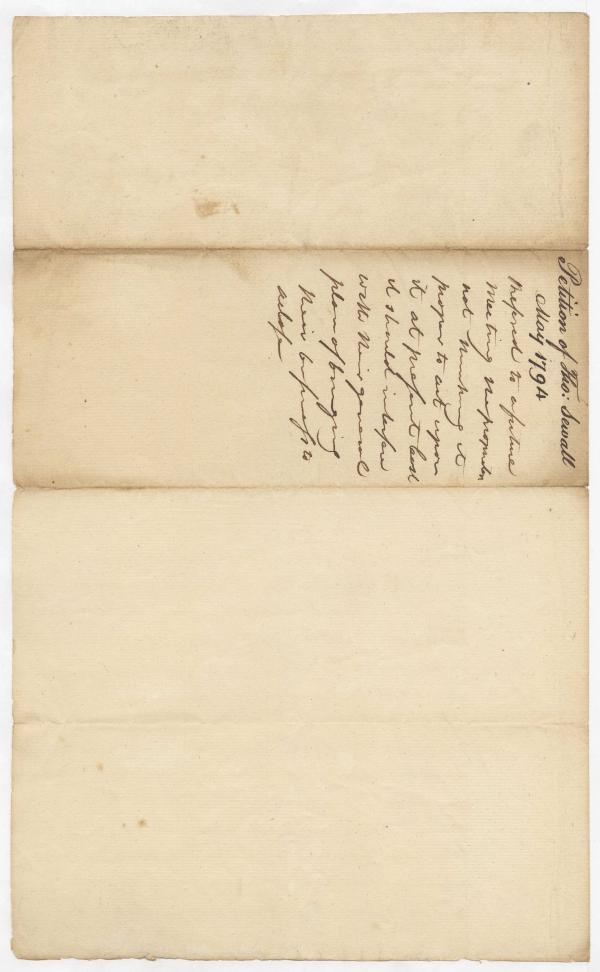 Petition of Tho: Sewall
May 1794
Referred to a future
Meeting the proprietors
not thinking it
proper to act upon
it at present least
it should interfere
with their general
plan of bringing
their business to
a close